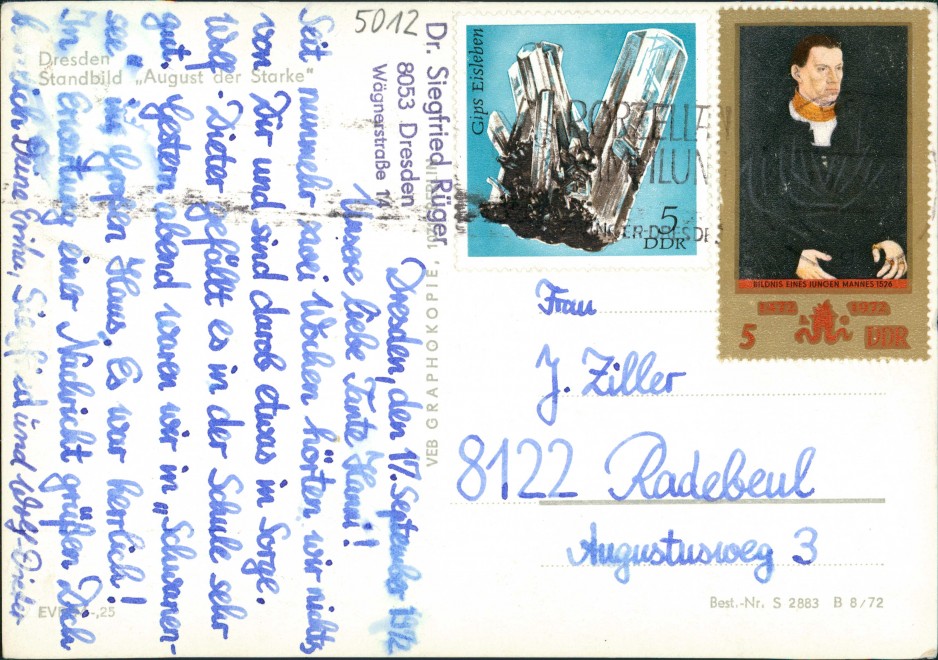 5012
Dresden
Standbild „August der Starke“
Dr. Siegfried Rüger
8053 Dresden
Wägnerstraße 14
Dresden, den 17. September 1972
Unsere liebe Tante Hanni!
Seit nunmehr zwei Wochen hörten wir nichts
von Dir und sind darob etwas in Sorge.
Wolf-Dieter gefällt es in der Schule sehr
gut. Gestern abend waren wir in „Schwanen-
see“ im Großen Haus. Es war herrlich!
In Erwartung einer Nachricht grüßen Dich
herzlich Deine Erina, Siegfried und Wolf-Dieter
EVP -,25
VEB GRAPHOKOPIE,
Gips Eisleben
5
DDR
BILDNIS EINES JUNGEN MANNES 1526
1472 1972
5 DDR
PORZELLAN
Frau
J. Ziller
8122 Radebeul
Augustusweg 3
Best.-Nr. S 2883 B 8/72